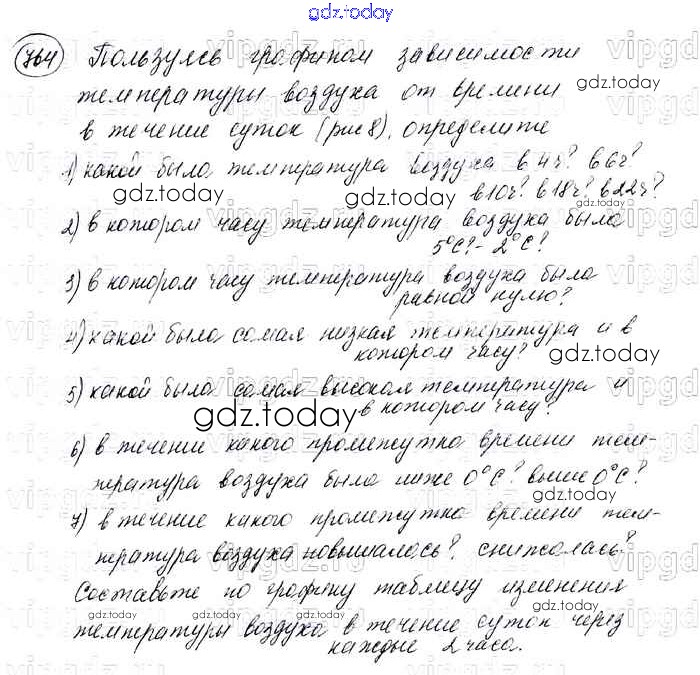 gdz.today
764 Пользуясь графиком зависимости
температуры воздуха от времени
в течение суток (рис 8), определите
1) какой была температура воздуха в 4ч? в 6ч?
в 10ч? в 18ч? в 22ч?
2) в котором часу температура воздуха была
5°С? -2°С?
3) в котором часу температура воздуха была
равной нулю?
4) какой была самая низкая температура и в
котором часу?
5) какой была самая высокая температура и
в котором часу?
6) в течение какого промежутка времени тем-
пература воздуха была ниже 0°С? выше 0°С?
7) в течение какого промежутка времени тем-
пература воздуха повышалась? снижалась?
Составьте по графику таблицу изменения
температуры воздуха в течение суток через
каждые 2 часа.